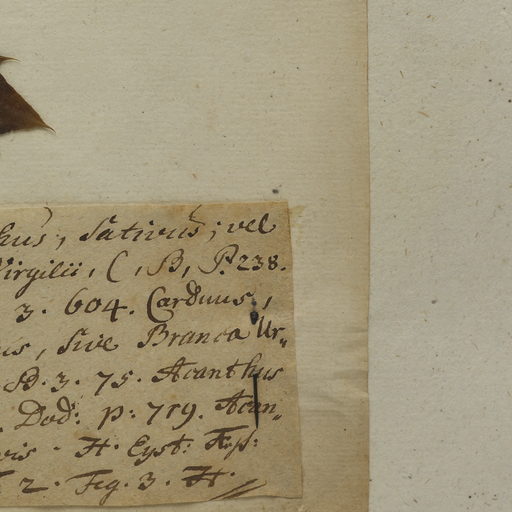 hus, Sativus; vel
Virgilii, C, B, P. 238.
3. 604. Carduus,
us, sive Branca Ur„
B. 3. 75. Acanthus
Dod: p: 719. Acan„
H. Eyst:
2. Fig. 3. H.